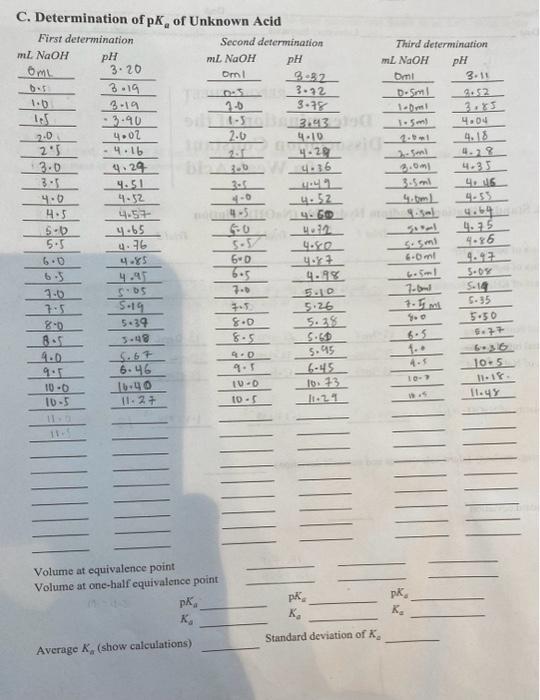 C. Determination of pKa of Unknown Acid
First determination Second determination Third determination
mL NaOH pH mL NaOH pH mL NaOH pH
0mL 3.20 0ml 3.32 0ml 3.11
0.5 3.19 0.5 3.72 0.5ml 3.52
1.0 3.19 1.0 3.78 1.0ml 3.85
1.5 3.90 1.5 3.93 1.5ml 4.04
2.0 4.02 2.0 4.10 2.0ml 4.18
2.5 4.16 2.5 4.28 2.5ml 4.28
3.0 4.29 3.0 4.36 3.0ml 4.35
3.5 4.51 3.5 4.49 3.5ml 4.46
4.0 4.52 4.0 4.52 4.0ml 4.55
4.5 4.57 4.5 4.60 4.5ml 4.64
5.0 4.65 5.0 4.72 5.0ml 4.75
5.5 4.76 5.5 4.80 5.5ml 4.86
6.0 4.85 6.0 4.87 6.0ml 4.97
6.5 4.95 6.5 4.98 6.5ml 5.08
7.0 5.05 7.0 5.10 7.0ml 5.19
7.5 5.19 7.5 5.26 7.5 ml 5.35
8.0 5.37 8.0 5.38 8.0 5.50
8.5 5.48 8.5 5.60 8.5 5.77
9.0 5.67 9.0 5.95 9.0 6.36
9.5 6.46 9.5 6.45 9.5 10.5
10.0 10.40 10.0 10.73 10.0 11.18
10.5 11.27 10.5 11.29 10.5 11.48
11.0
11.5
Volume at equivalence point
Volume at one-half equivalence point
pKa pKa pKa
Ka Ka Ka
Average Ka (show calculations) Standard deviation of Ka